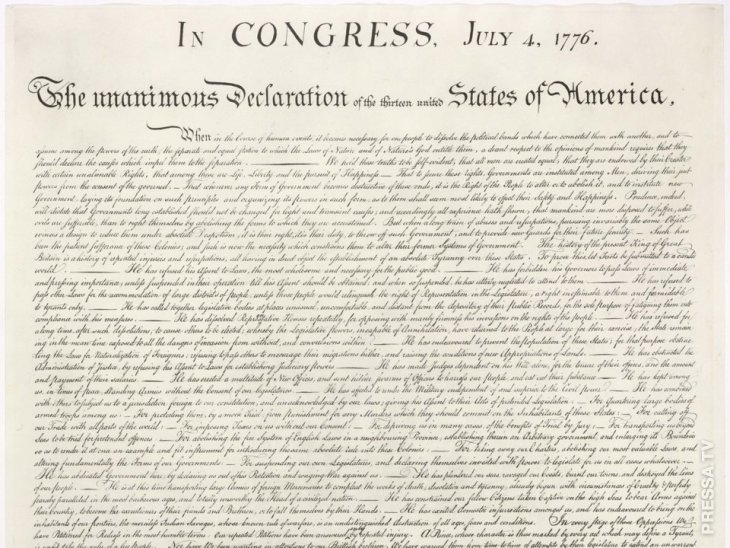 IN CONGRESS, JULY 4, 1776.
The unanimous Declaration of the thirteen united States of America,
When in the Course of human events, it becomes necessary for one people to dissolve the political bands which have connected them with another, and to
assume among the powers of the earth, the separate and equal station to which the Laws of Nature and of Nature's God entitle them, a decent respect to the opinions of mankind requires that they
should declare the causes which impel them to the separation. — We hold these truths to be self-evident, that all men are created equal, that they are endowed by their Creator
with certain unalienable Rights, that among these are Life, Liberty and the pursuit of Happiness. — That to secure these rights, Governments are instituted among Men, deriving their just
powers from the consent of the governed, — That whenever any Form of Government becomes destructive of these ends, it is the Right of the People to alter or to abolish it, and to institute new
Government, laying its foundation on such principles and organizing its powers in such form, as to them shall seem most likely to effect their Safety and Happiness. Prudence, indeed,
will dictate that Governments long established should not be changed for light and transient causes; and accordingly all experience hath shewn, that mankind are more disposed to suffer, while
evils are sufferable, than to right themselves by abolishing the forms to which they are accustomed. But when a long train of abuses and usurpations, pursuing invariably the same Object
evinces a design to reduce them under absolute Despotism, it is their right, it is their duty, to throw off such Government, and to provide new Guards for their future security. — Such has
been the patient sufferance of these Colonies; and such is now the necessity which constrains them to alter their former Systems of Government. The history of the present King of Great
Britain is a history of repeated injuries and usurpations, all having in direct object the establishment of an absolute Tyranny over these States. To prove this, let Facts be submitted to a candid
world. — He has refused his Assent to Laws, the most wholesome and necessary for the public good. — He has forbidden his Governors to pass Laws of immediate
and pressing importance, unless suspended in their operation till his Assent should be obtained; and when so suspended, he has utterly neglected to attend to them. — He has refused to
pass other Laws for the accommodation of large districts of people, unless those people would relinquish the right of Representation in the Legislature, a right inestimable to them and formidable
to tyrants only. — He has called together legislative bodies at places unusual, uncomfortable, and distant from the depository of their Public Records, for the sole purpose of fatiguing them into
compliance with his measures. — He has dissolved Representative Houses repeatedly, for opposing with manly firmness his invasions on the rights of the people. — He has refused for
a long time, after such dissolutions, to cause others to be elected; whereby the Legislative powers, incapable of Annihilation, have returned to the People at large for their exercise; the State remain-
ing in the mean time exposed to all the dangers of invasion from without, and convulsions within. — He has endeavoured to prevent the population of these States; for that purpose obstruc-
ting the Laws for Naturalization of Foreigners; refusing to pass others to encourage their migrations hither, and raising the conditions of new Appropriations of Lands. — He has obstructed the
Administration of Justice, by refusing his Assent to Laws for establishing Judiciary powers. — He has made Judges dependent on his Will alone, for the tenure of their offices, and the amount
and payment of their salaries. — He has erected a multitude of New Offices, and sent hither swarms of Officers to harrass our people, and eat out their substance. — He has kept among
us, in times of peace, Standing Armies without the Consent of our legislatures. — He has affected to render the Military independent of and superior to the Civil power. — He has combined
with others to subject us to a jurisdiction foreign to our constitution, and unacknowledged by our laws; giving his Assent to their Acts of pretended Legislation: — For Quartering large bodies of
armed troops among us: — For protecting them, by a mock Trial, from punishment for any Murders which they should commit on the Inhabitants of these States: — For cutting off
our Trade with all parts of the world: — For imposing Taxes on us without our Consent: — For depriving us in many cases, of the benefits of Trial by Jury: — For transporting us beyond
Seas to be tried for pretended offences — For abolishing the free System of English Laws in a neighbouring Province, establishing therein an Arbitrary government, and enlarging its Boundaries
so as to render it at once an example and fit instrument for introducing the same absolute rule into these Colonies: — For taking away our Charters, abolishing our most valuable Laws, and
altering fundamentally the Forms of our Governments: — For suspending our own Legislatures, and declaring themselves invested with power to legislate for us in all cases whatsoever. —
He has abdicated Government here, by declaring us out of his Protection and waging War against us. — He has plundered our seas, ravaged our Coasts, burnt our towns, and destroyed the lives
of our people. — He is at this time transporting large Armies of foreign Mercenaries to compleat the works of death, desolation and tyranny, already begun with circumstances of Cruelty & perfidy
scarcely paralleled in the most barbarous ages, and totally unworthy the Head of a civilized nation. — He has constrained our fellow Citizens taken Captive on the high Seas to bear Arms against
their Country, to become the executioners of their friends and Brethren, or to fall themselves by their Hands. — He has excited domestic insurrections amongst us, and has endeavoured to bring on the
inhabitants of our frontiers, the merciless Indian Savages, whose known rule of warfare, is an undistinguished destruction of all ages, sexes and conditions. In every stage of these Oppressions We
have Petitioned for Redress in the most humble terms: Our repeated Petitions have been answered only by repeated injury. A Prince, whose character is thus marked by every act which may define a Tyrant,
PRESSA.TV